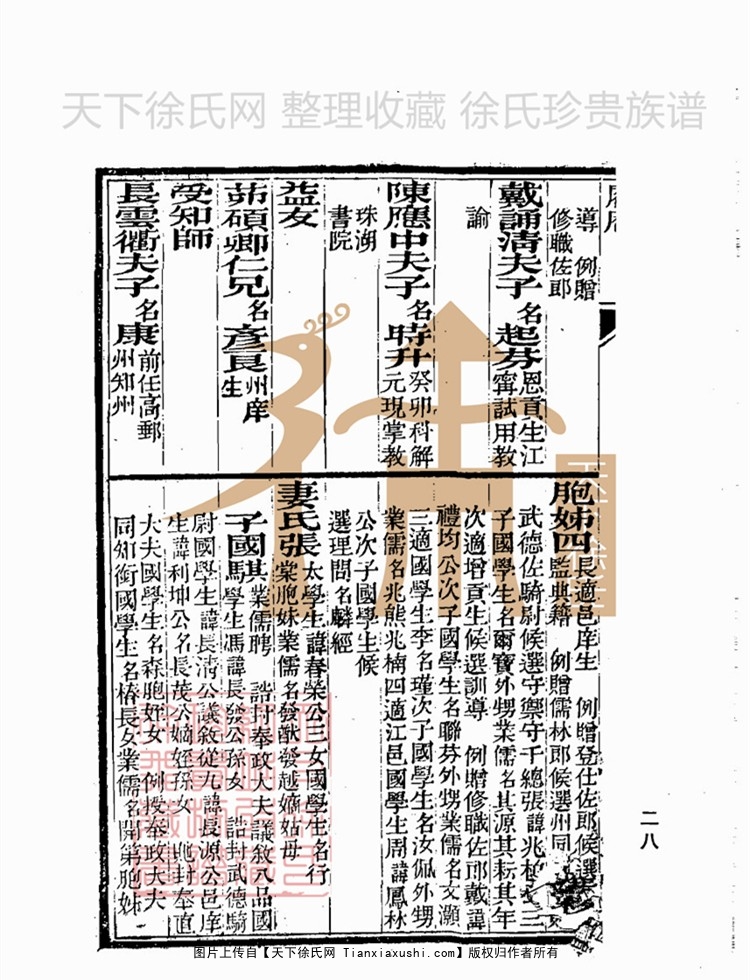 天下徐氏网 整理收藏 徐氏珍贵族谱
導 例贈
修職佐郎
戴誦清夫子名起芬恩貢生江
甯試用教
諭
陳應中夫子名時升癸卯科解
元現掌教
珠湖
書院
益友
茆碩卿仁兄名彥良州庠
生
受知師
長雲衢夫子名康前任高郵
州知州
胞姊四長適邑庠生 例贈登仕佐郎候選
監典籍 例贈儒林郎候選州同
武德佐騎尉候選守禦守千總張諱兆
子國學生名爾寶外甥業儒名其源其耘其年
次適增貢生候選訓導 例贈修職佐郎戴諱
禮均公次子國學生名聯芬外甥業儒名文灝
三適國學生李名瑾次子國學生名汝佩外甥
業儒名兆熊兆楠四適江邑國學生周諱鳳林
公次子國學生候
選理問名麟經
妻氏張太學生諱春榮公三女國學生名行
棠胞妹業儒名發猷發越嫡姑母
子國騏業儒聘 誥封奉政大夫議敘八品國
國駬學生馮諱長發公孫女 誥封武德騎
尉國學生諱長清公議敘從九諱長源公邑庠
生諱利坤公名長茂公嫡姪孫女 封奉直
大夫國學生名森胞姪女 例授奉政大夫
同知銜國學生名椿長女業儒名開第胞姊
二八
图片上传自【天下徐氏网 Tianxiaxushi.com】版权归作者所有